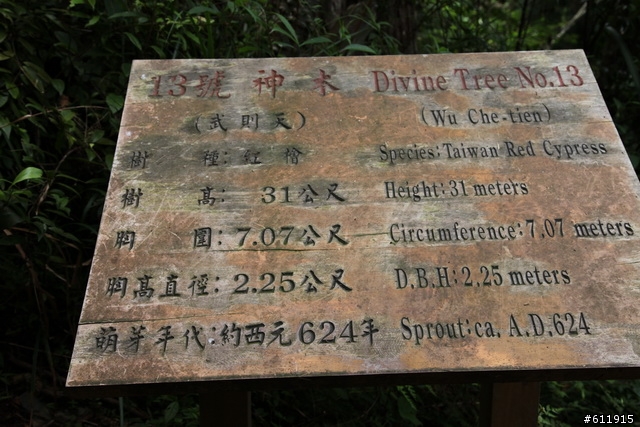 13號 神 木 Divine Tree No.13
(武則天) (Wu Che-tien)
樹 種: 紅 檜 Species:Taiwan Red Cypress
樹 高: 31公尺 Height:31 meters
胸 圍: 7.07公尺 Circumference:7.07 meters
胸高直徑: 2.25公尺 D.B.H:2.25 meters
萌芽年代:約西元624年 Sprout:ca. A.D.624
#611915